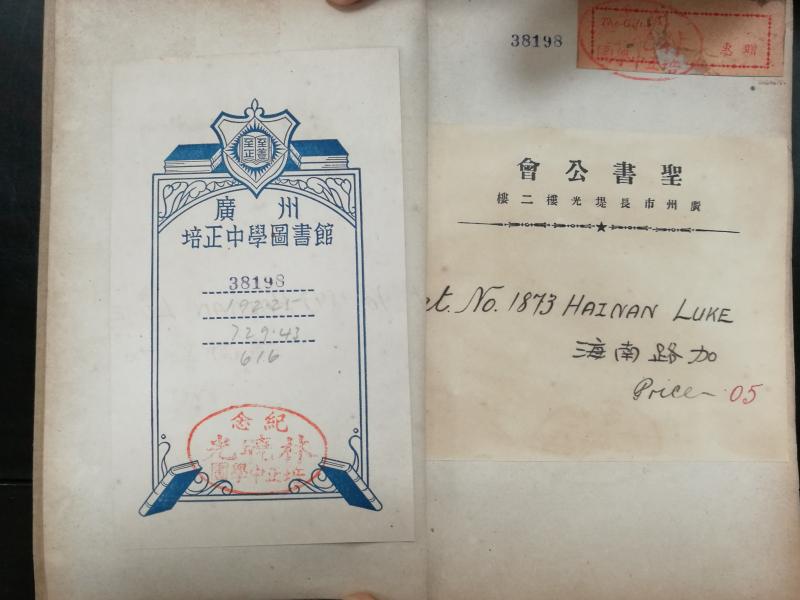 至善
至正
廣州
培正中學圖書館
38198
192.25
729.43
616
紀念
38198
The Gift of
聖書公會
廣州市長堤光樓二樓
t. No. 1873 HAINAN LUKE
海南路加
Price - .05